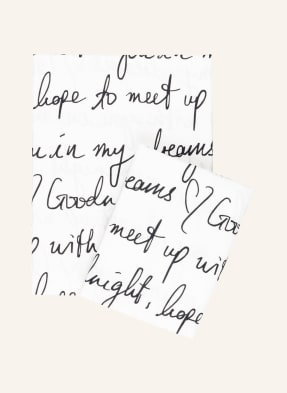 hope to meet up
u in my reams
♡ Goodn
p with
eams ♡ Goo
meet up wi
night, hope